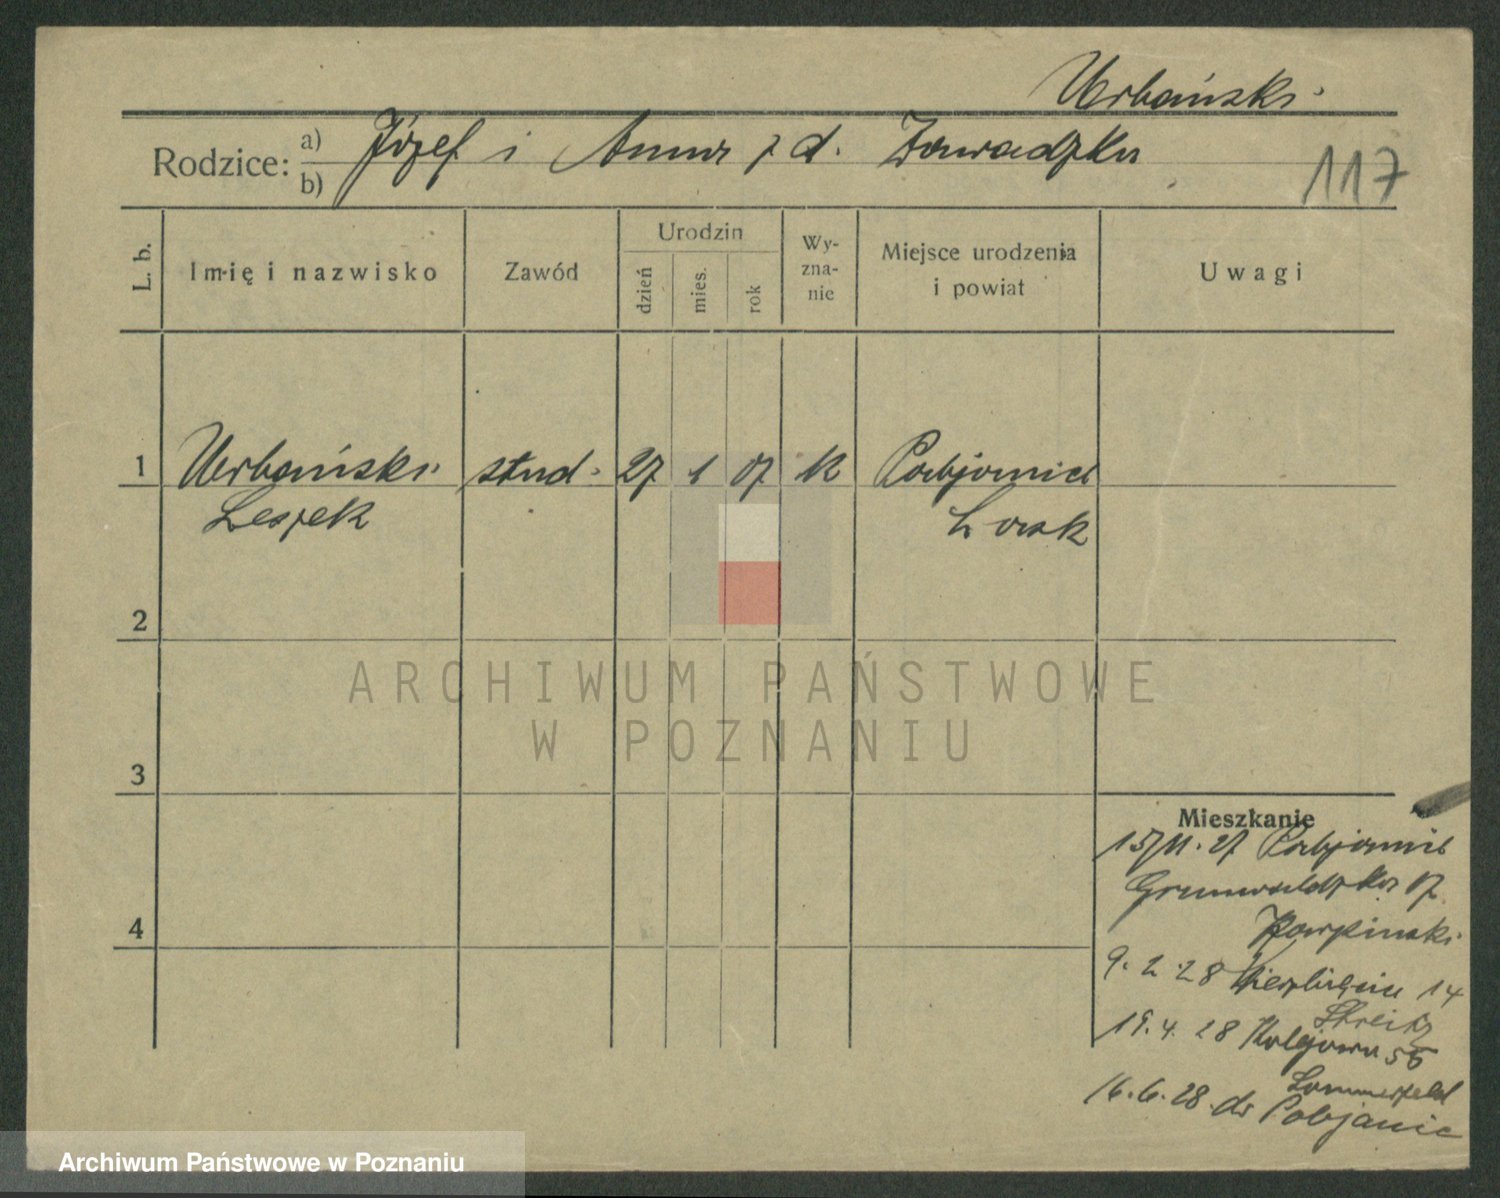 Urbański
Rodzice: a) Józef i Anna z d. Zawadzka
b)
117
L. b.
Imię i nazwisko
Zawód
Urodzin
dzień
mies.
rok
Wy-
zna-
nie
Miejsce urodzenia
i powiat
Uwagi
1 Urbański stud. 27 1 07 k Pabjanice
Leszek Łask
2
ARCHIWUM PAŃSTWOWE
W POZNANIU
3
Mieszkanie
15/11.27 Pabjanic
Grunwaldzka 17
4
Karpiński
9.2.28 Wierzbięcice 14
Streit
19.4.28 Kolejowa 56
Sommerfeld
16.6.28 do Pabjanic
Archiwum Państwowe w Poznaniu